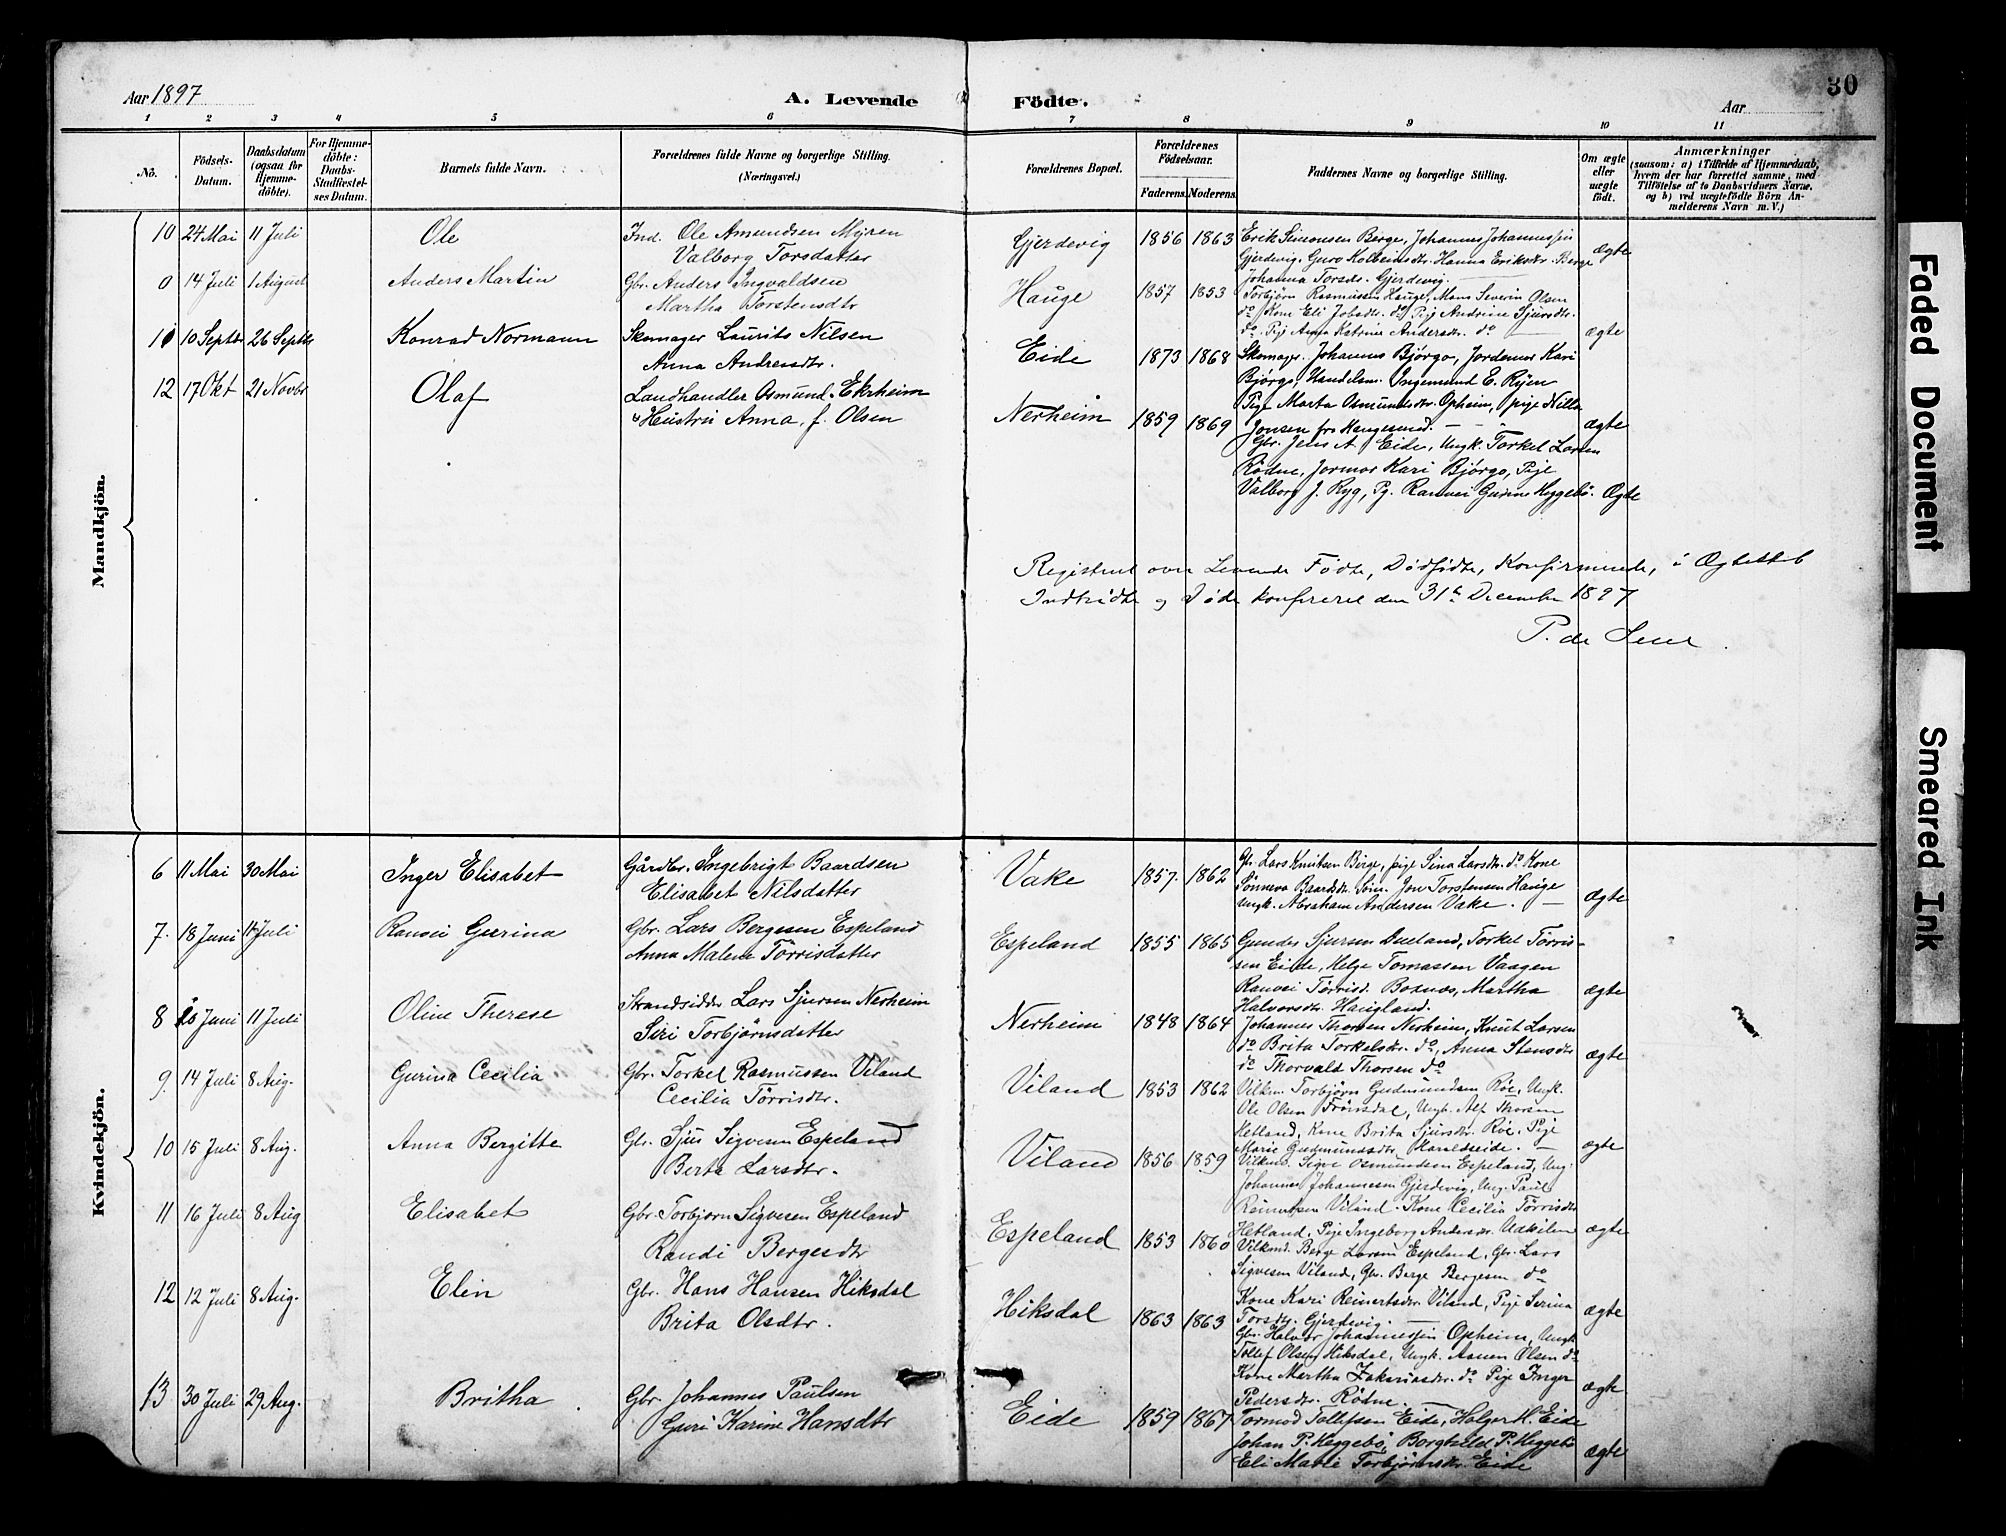 Aar 1897
A. Levende
Födte.
Aar
30
1 2 3 4 5 6 7 8 9 10 11
No.
Födsels-
Datum.
Daabsdatum
(ogsaa for
Hjemme-
döbte).
For Hjemme-
döbte:
Daabs-
Stadfæstel-
ses Datum.
Barnets fulde Navn.
Forældrenes fulde Navne og borgerlige Stilling.
(Næringsvei.)
Forældrenes Bopæl.
Forældrenes
Födselsaar.
Faderens. Moderens.
Faddernes Navne og borgerlige Stilling.
Om ægte
eller
uægte
födt.
Anmærkninger
(saasom: a) i Tilfælde af Hjemmedaab,
hvem der har forrettet samme, med
Tilföielse af to Daabsvidners Navne,
og b) ved uægtefödte Börn An-
melderens Navn m. V.)
Mandkjön.
10 24 Mai 11 Juli Ole Ind. Ole Amundsen Myren
Valborg Torsdatter
Gjerdevig 1856 1863 Erik Simonsen Berge, Johannes Johannessen
Gjerdevig, Guro Kolbeinsdtr. Hanna Eriksdtr. Berge
Johanna Torsdtr. Gjerdevig. ægte
0 14 Juli 1 August Anders Martin Gbr. Anders Ingvaldsen
Martha Torstensdtr
Hauge 1857 1853 Torbjörn Rasmussen Hauge, Mons Severin Olsen
do, Kone Eli Jobsdtr. do, Pige Andrine Sjursdtr.
do. Pige Anna Katrine Andersdtr. do ægte
11 10 Septbr 26 Septbr Konrad Normann Skomager Laurits Nilsen
Anna Andreasdtr.
Eide 1873 1868 Skomager. Johannes Bjørgo, Jordemor Kari
Bjørgo, Handelsm. Ingemund E. Ryen
Pige Marta Osmundsdtr. Opheim, pige Nilla
Jonsen fra Haugesund. ægte
12 17 Okt 21 Novbr Olaf Landhandler Osmund Ekrheim
& Hustru Anna, f. Olsen
Nerheim 1859 1869 Gbr. Jens A. Eide, Ungk. Torkel Larsen
Rödne, Jormor Kari Bjørgo, Pige
Valborg J. Ryg, Pg. Ranvei Gurine Heggebö. Ægte
Registret over Levende Födte, Dödfödte, Konfirmerede, i Ægtestab
Indtrådte og Döde konfereret den 31te December 1897
Kvindekjön.
6 11 Mai 30 Mai Inger Elisabet Gårdbr. Ingebrigt Baardsen
Elisabet Nilsdatter
Vake 1857. 1862 Gbr. Lars Knutsen Berge, pige Sina Larsdtr. do Kone
Sönneva Baardsdtr. Jon Torstensen Hauge
Ungk. Abraham Andersen Vake. ægte
7. 18 Juni 11 Juli Ranvei Gurina Gbr. Lars Bergesen Espeland
Anna Malene Törrisdatter
Espeland 1855 1865 Gunder Sjursen Dueland, Torkel Törris-
sen Eide, Helge Tomassen Vaagen
Ranvei Törrisd. Boknes, Martha
Halvorsdtr. Haugland. ægte
8 Juni 11 Juli Oline Therese Strandsidder Lars Sjursen Nerheim
Siri Torbjörnsdatter
Nerheim 1848 1864 Johannes Thorsen Nerheim, Knut Larsen
do Brita Torkelsdtr. do, Anna Stensdtr
do Thorvald Thorsen do ægte
9. 14 Juli 8 Aug. Gurina Cecilia Gbr. Torkel Rasmussen Viland
Cecilia Törrisdtr.
Viland 1853 1862 Vilkm. Torbjörn Gudmundsen Röe, Ungk.
Ole Olsen Frönsdal, Ungk. Alf Thorsen
Hetland, Kone Brita Sjursdtr. Röe, Pige
Marie Gudmundsdtr Haraldseide. ægte
10 15 Juli 8 Aug. Anna Bergitte Gbr. Sjur Sigvesen Espeland
Berta Larsdtr.
Viland 1856 1859 Vilkm. Sigve Osmundsen Espeland, Ung.
Johannes Johannesen Gjerdevig, Ung. Paul
Reinertsen Viland. Kone Cecilia Törrisdtr
Hetland, Pige Ingeborg Andersdtr. Udkilen ægte
11 16 Juli 8 Aug Elisabet Gbr. Torbjorn Sigvesen Espeland
Randi Bergesdtr
Espeland 1853 1860 Vilkmd. Berge Larsen Espeland, Gbr. Lars
Sigvesen Viland, Gbr. Berge Bergesen do
Kone Kari Reinertsdtr. Viland, Pige Serina
Torsdtr. Gjerdevig. ægte
12 12 Juli 8 Aug. Elen Gbr. Hans Hansen Hiksdal
Brita Olsdtr.
Hiksdal 1863 1863 Gbr. Halvor Johannessen Opheim, Ungk.
Tollef Olsen Hiksdal, Ungk. Aanen Olsen do
Kone Martha Zakariasdtr. do Pige Inger
Pedersdtr. Rödne. ægte
13 30 Juli 29 Aug. Britha Gbr. Johannes Paulsen
Guri Karine Hansdtr
Eide 1859 1867 Tormod Tollefsen Eide, Holger H. Eide
Johan P. Heggebö, Borghild P. Heggebö
Eli Marie Torbjörnsdtr. Eide ægte
Faded Document
Smeared Ink